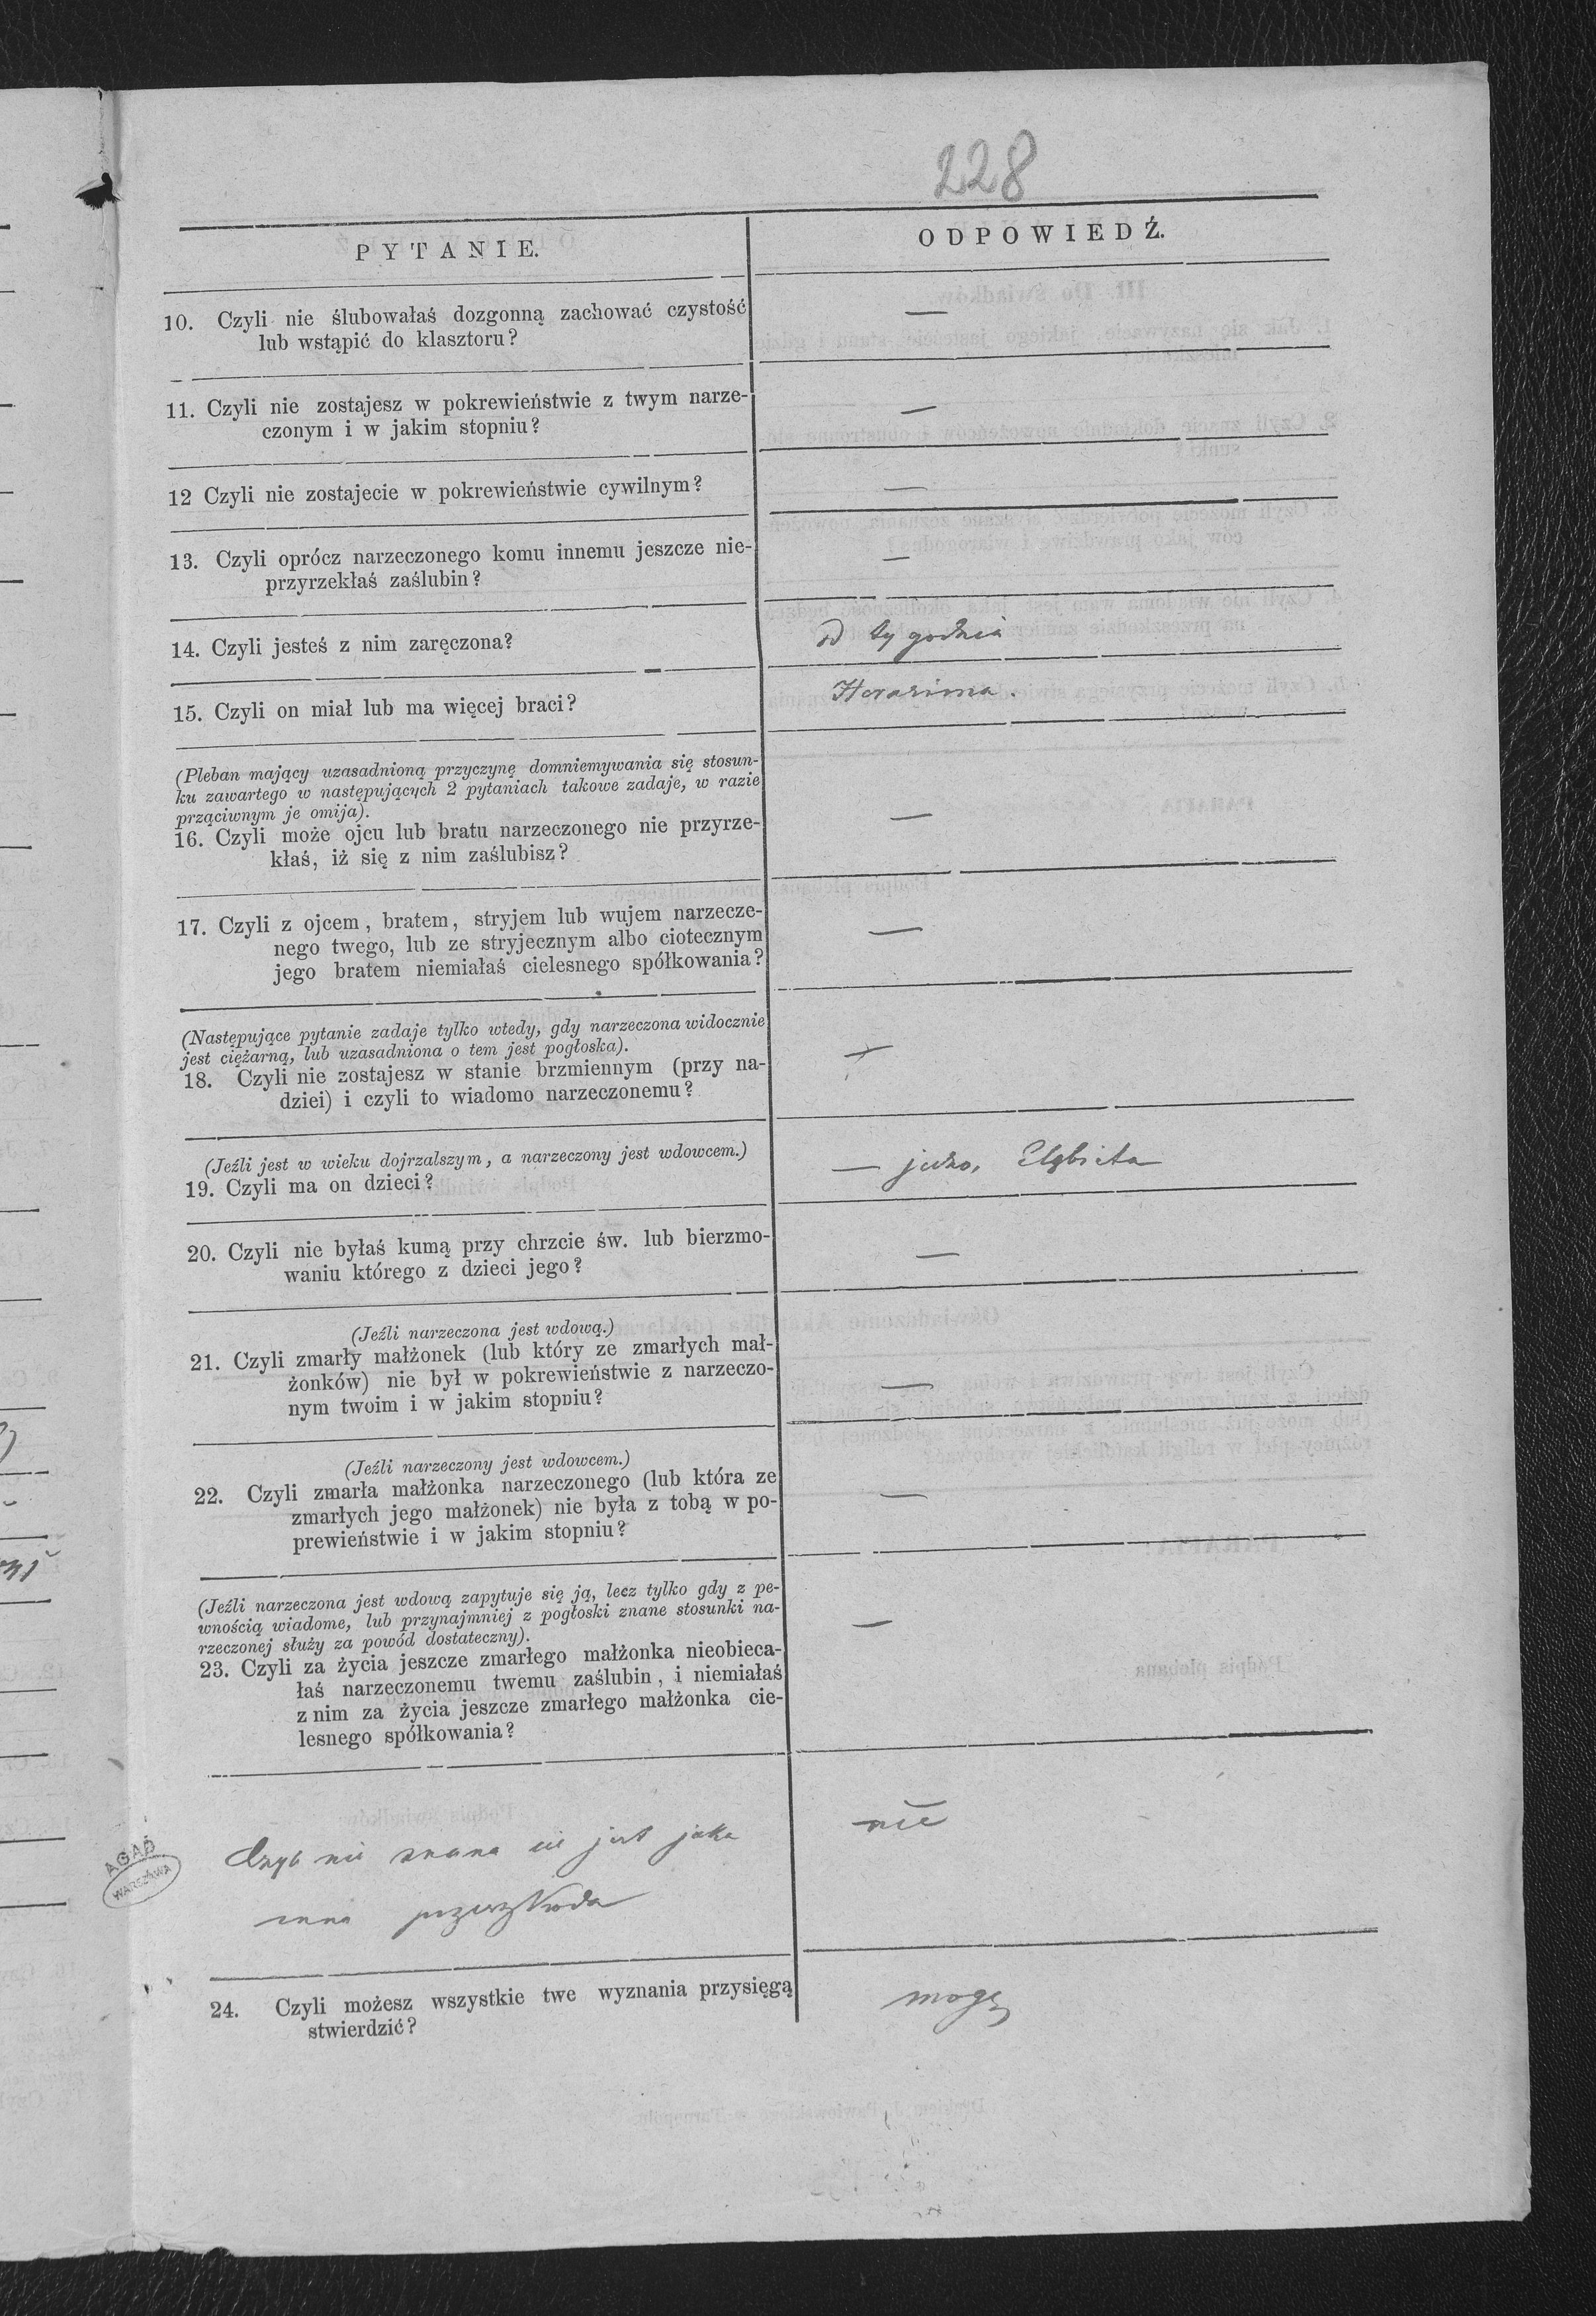 228
PYTANIE.
ODPOWIEDŹ.
10. Czyli nie ślubowałaś dozgonną zachować czystość
lub wstąpić do klasztoru?
—
11. Czyli nie zostajesz w pokrewieństwie z twym narze-
czonym i w jakim stopniu?
—
12 Czyli nie zostajecie w pokrewieństwie cywilnym?
—
13. Czyli oprócz narzeczonego komu innemu jeszcze nie-
przyrzekłaś zaślubin?
—
14. Czyli jesteś z nim zaręczona?
od tygodnia
15. Czyli on miał lub ma więcej braci?
Herasima.
(Pleban mający uzasadnioną przyczynę domniemywania się stosun-
ku zawartego w następujących 2 pytaniach takowe zadaje, w razie
prząciwnym je omija).
16. Czyli może ojcu lub bratu narzeczonego nie przyrze-
kłaś, iż się z nim zaślubisz?
—
17. Czyli z ojcem, bratem, stryjem lub wujem narzecze-
nego twego, lub ze stryjecznym albo ciotecznym
jego bratem niemiałaś cielesnego spółkowania?
—
(Następujące pytanie zadaje tylko wtedy, gdy narzeczona widocznie
jest ciężarną, lub uzasadniona o tem jest pogłoska).
18. Czyli nie zostajesz w stanie brzmiennym (przy na-
dziei) i czyli to wiadomo narzeczonemu?
—
(Jeźli jest w wieku dojrzalszym, a narzeczony jest wdowcem.)
19. Czyli ma on dzieci?
— Elżbieta
20. Czyli nie byłaś kumą przy chrzcie św. lub bierzmo-
waniu którego z dzieci jego?
—
(Jeźli narzeczona jest wdową.)
21. Czyli zmarły małżonek (lub który ze zmarłych mał-
żonków) nie był w pokrewieństwie z narzeczo-
nym twoim i w jakim stopniu?
—
(Jeźli narzeczony jest wdowcem.)
22. Czyli zmarła małżonka narzeczonego (lub która ze
zmarłych jego małżonek) nie była z tobą w po-
prewieństwie i w jakim stopniu?
—
(Jeźli narzeczona jest wdową zapytuje się ją, lecz tylko gdy z pe-
wnością wiadome, lub przynajmniej z pogłoski znane stosunki na-
rzeczonej służy za powód dostateczny).
23. Czyli za życia jeszcze zmarłego małżonka nieobieca-
łaś narzeczonemu twemu zaślubin, i niemiałaś
z nim za życia jeszcze zmarłego małżonka cie-
lesnego spółkowania?
—
Czyli nie znana ci jest jaka
inna przeszkoda
nie
AGAD
WARSZAWA
24. Czyli możesz wszystkie twe wyznania przysięgą
stwierdzić?
mogę